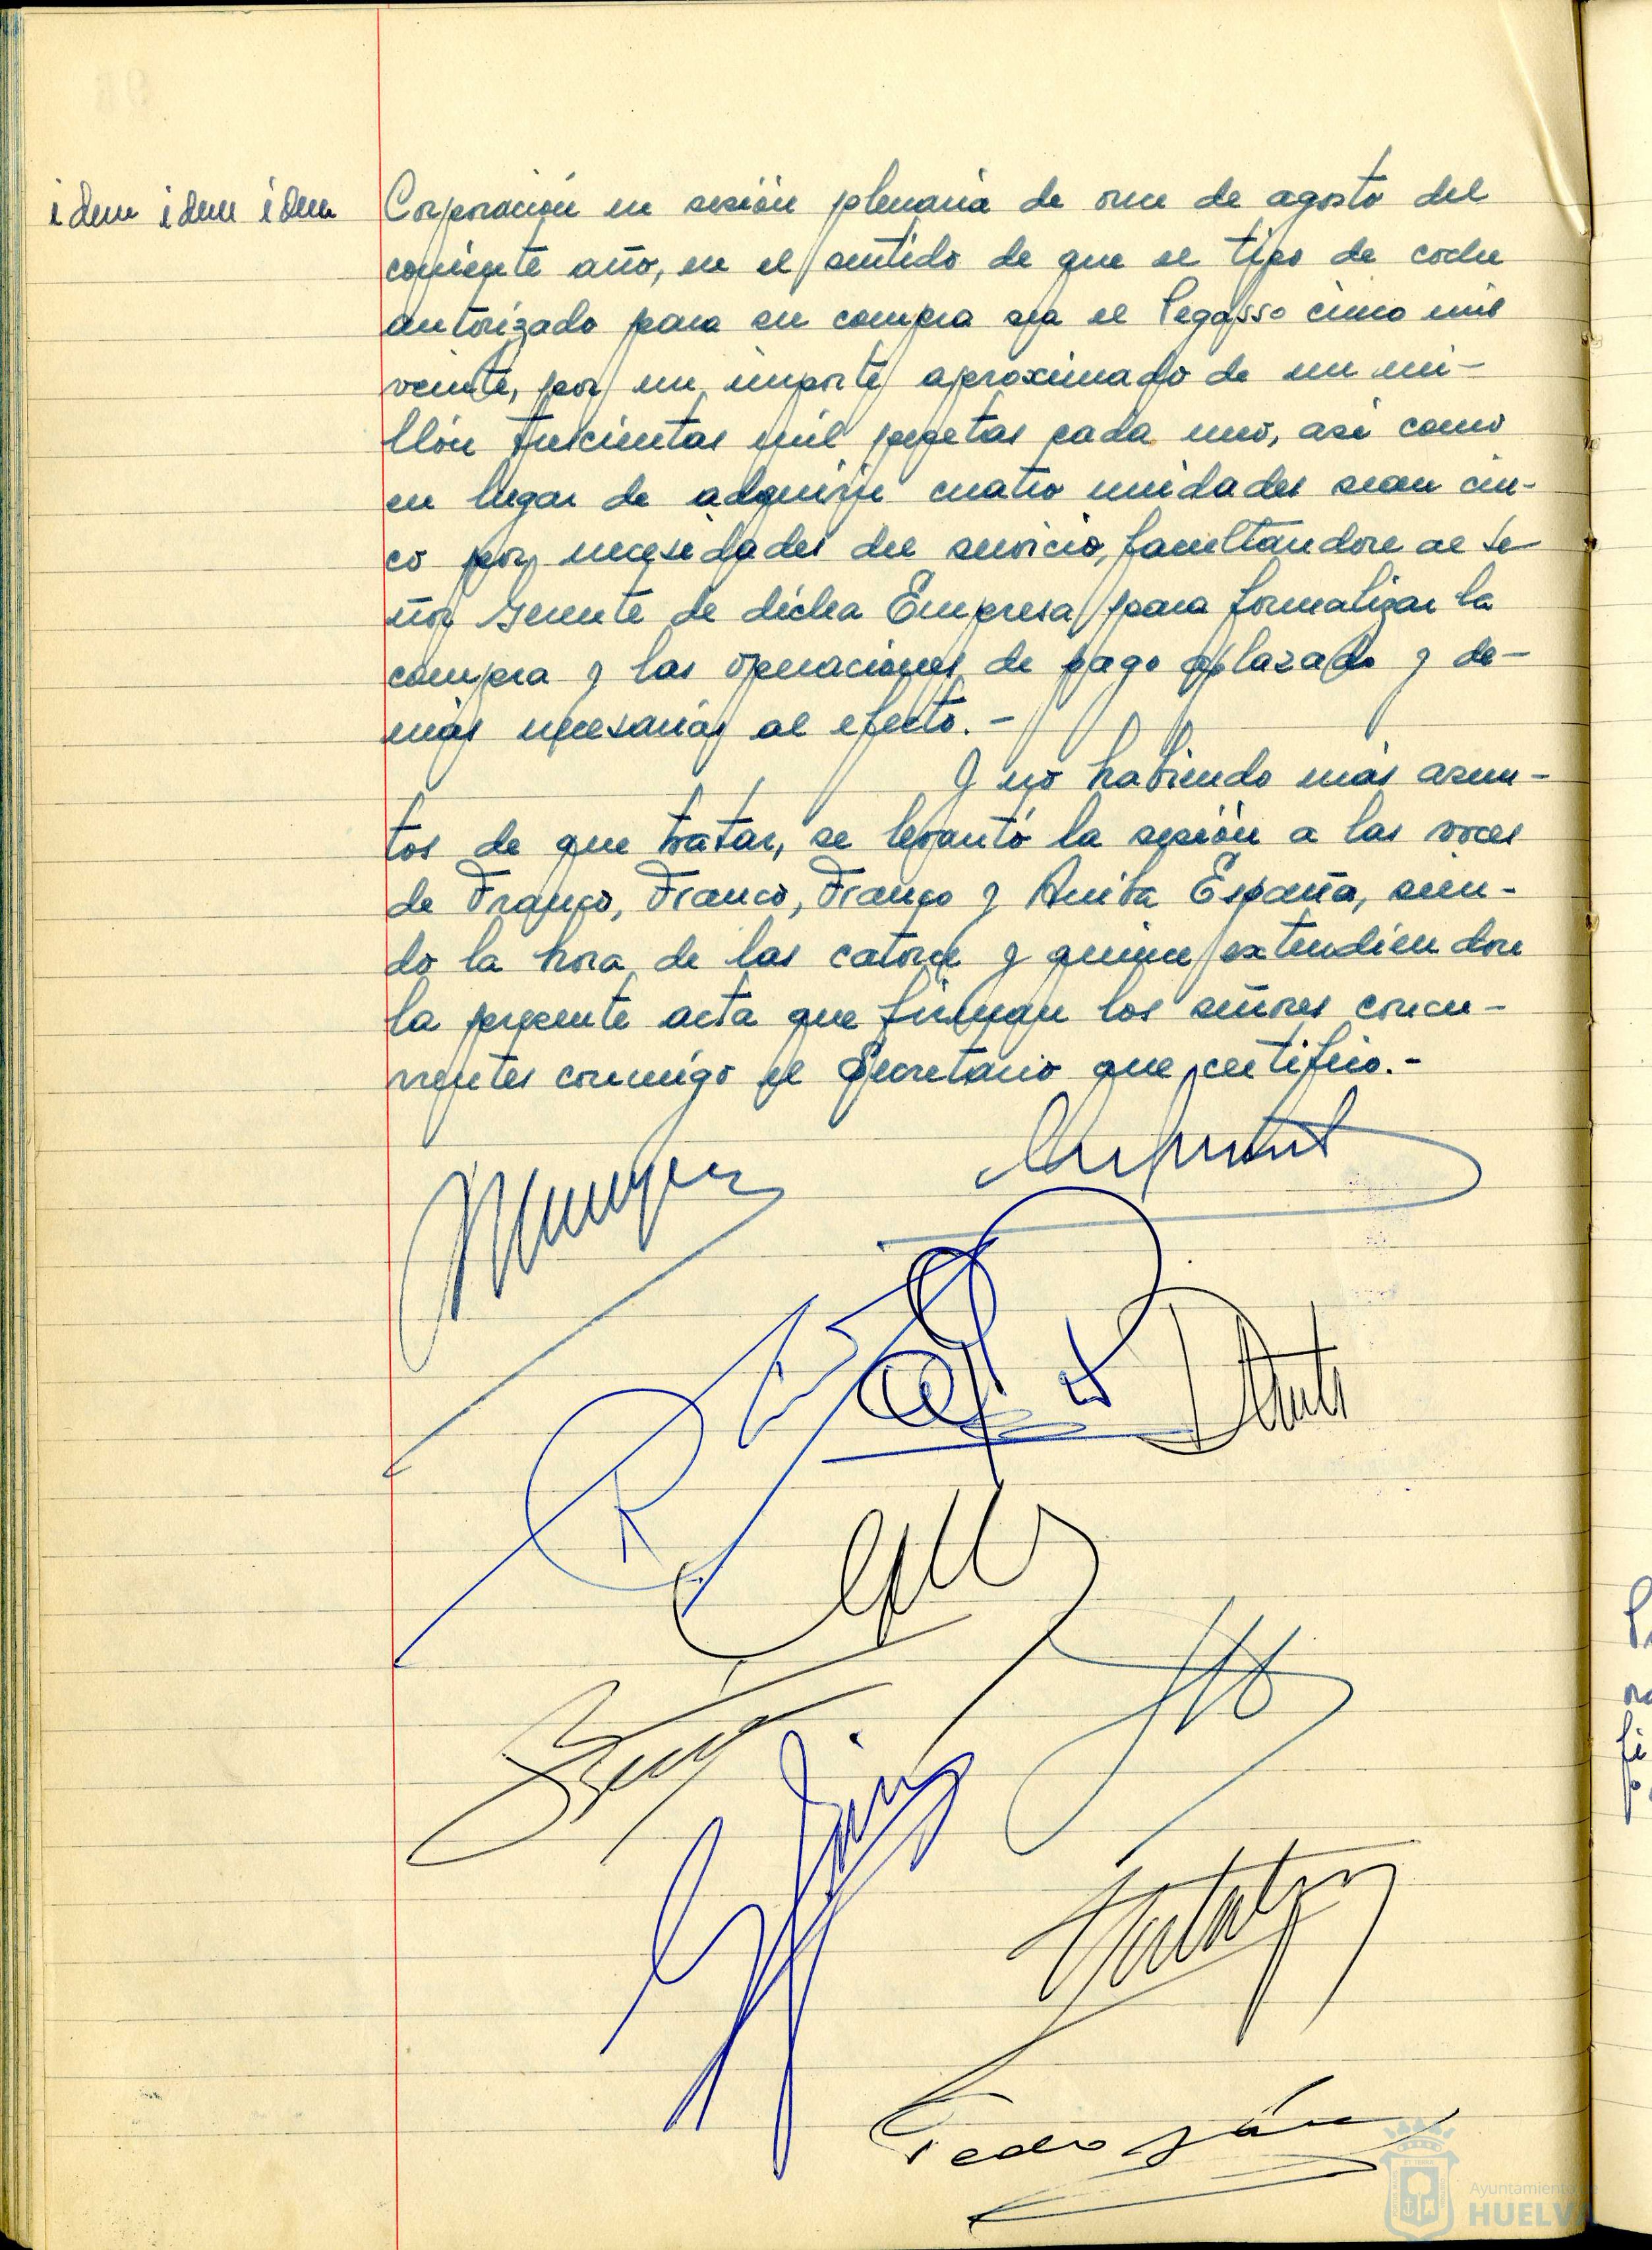 idem idem idem
Corporación en sesión plenaria de once de agosto del
corriente año, en el sentido de que el tipo de coche
autorizado para su compra sea el Pegasso cinco mil
veinte, por un importe aproximado de un mi-
llón trescientas mil pesetas cada uno, asi como
en lugar de adquirir cuatro unidades sean cin-
co por necesidades del servicio, facultandose al Se-
ñor Gerente de dicha Empresa para formalizar la
compra y las operaciones de pago aplazado y de-
más necesarias al efecto.-
Y no habiendo más asun-
tos de que tratar, se levantó la sesión a las voces
de Franco, Franco, Franco y Arriba España, sien-
do la hora de las catorce y quince extendiendose
la presente acta que firman los señores concu-
rrentes conmigo el Secretario que certifico.-
Pedro
Ayuntamiento de
HUELVA